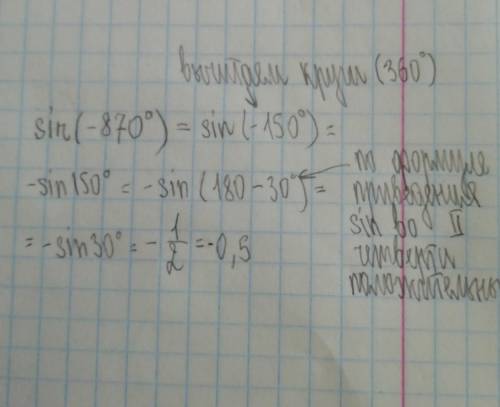 вычитаем круги (360°)
sin(-870°) = sin(-150°) =
-sin150° = -sin(180-30°) =
= -sin30° = -1/2 = -0,5
по формуле
приведения
sin во II
четверти
положительны